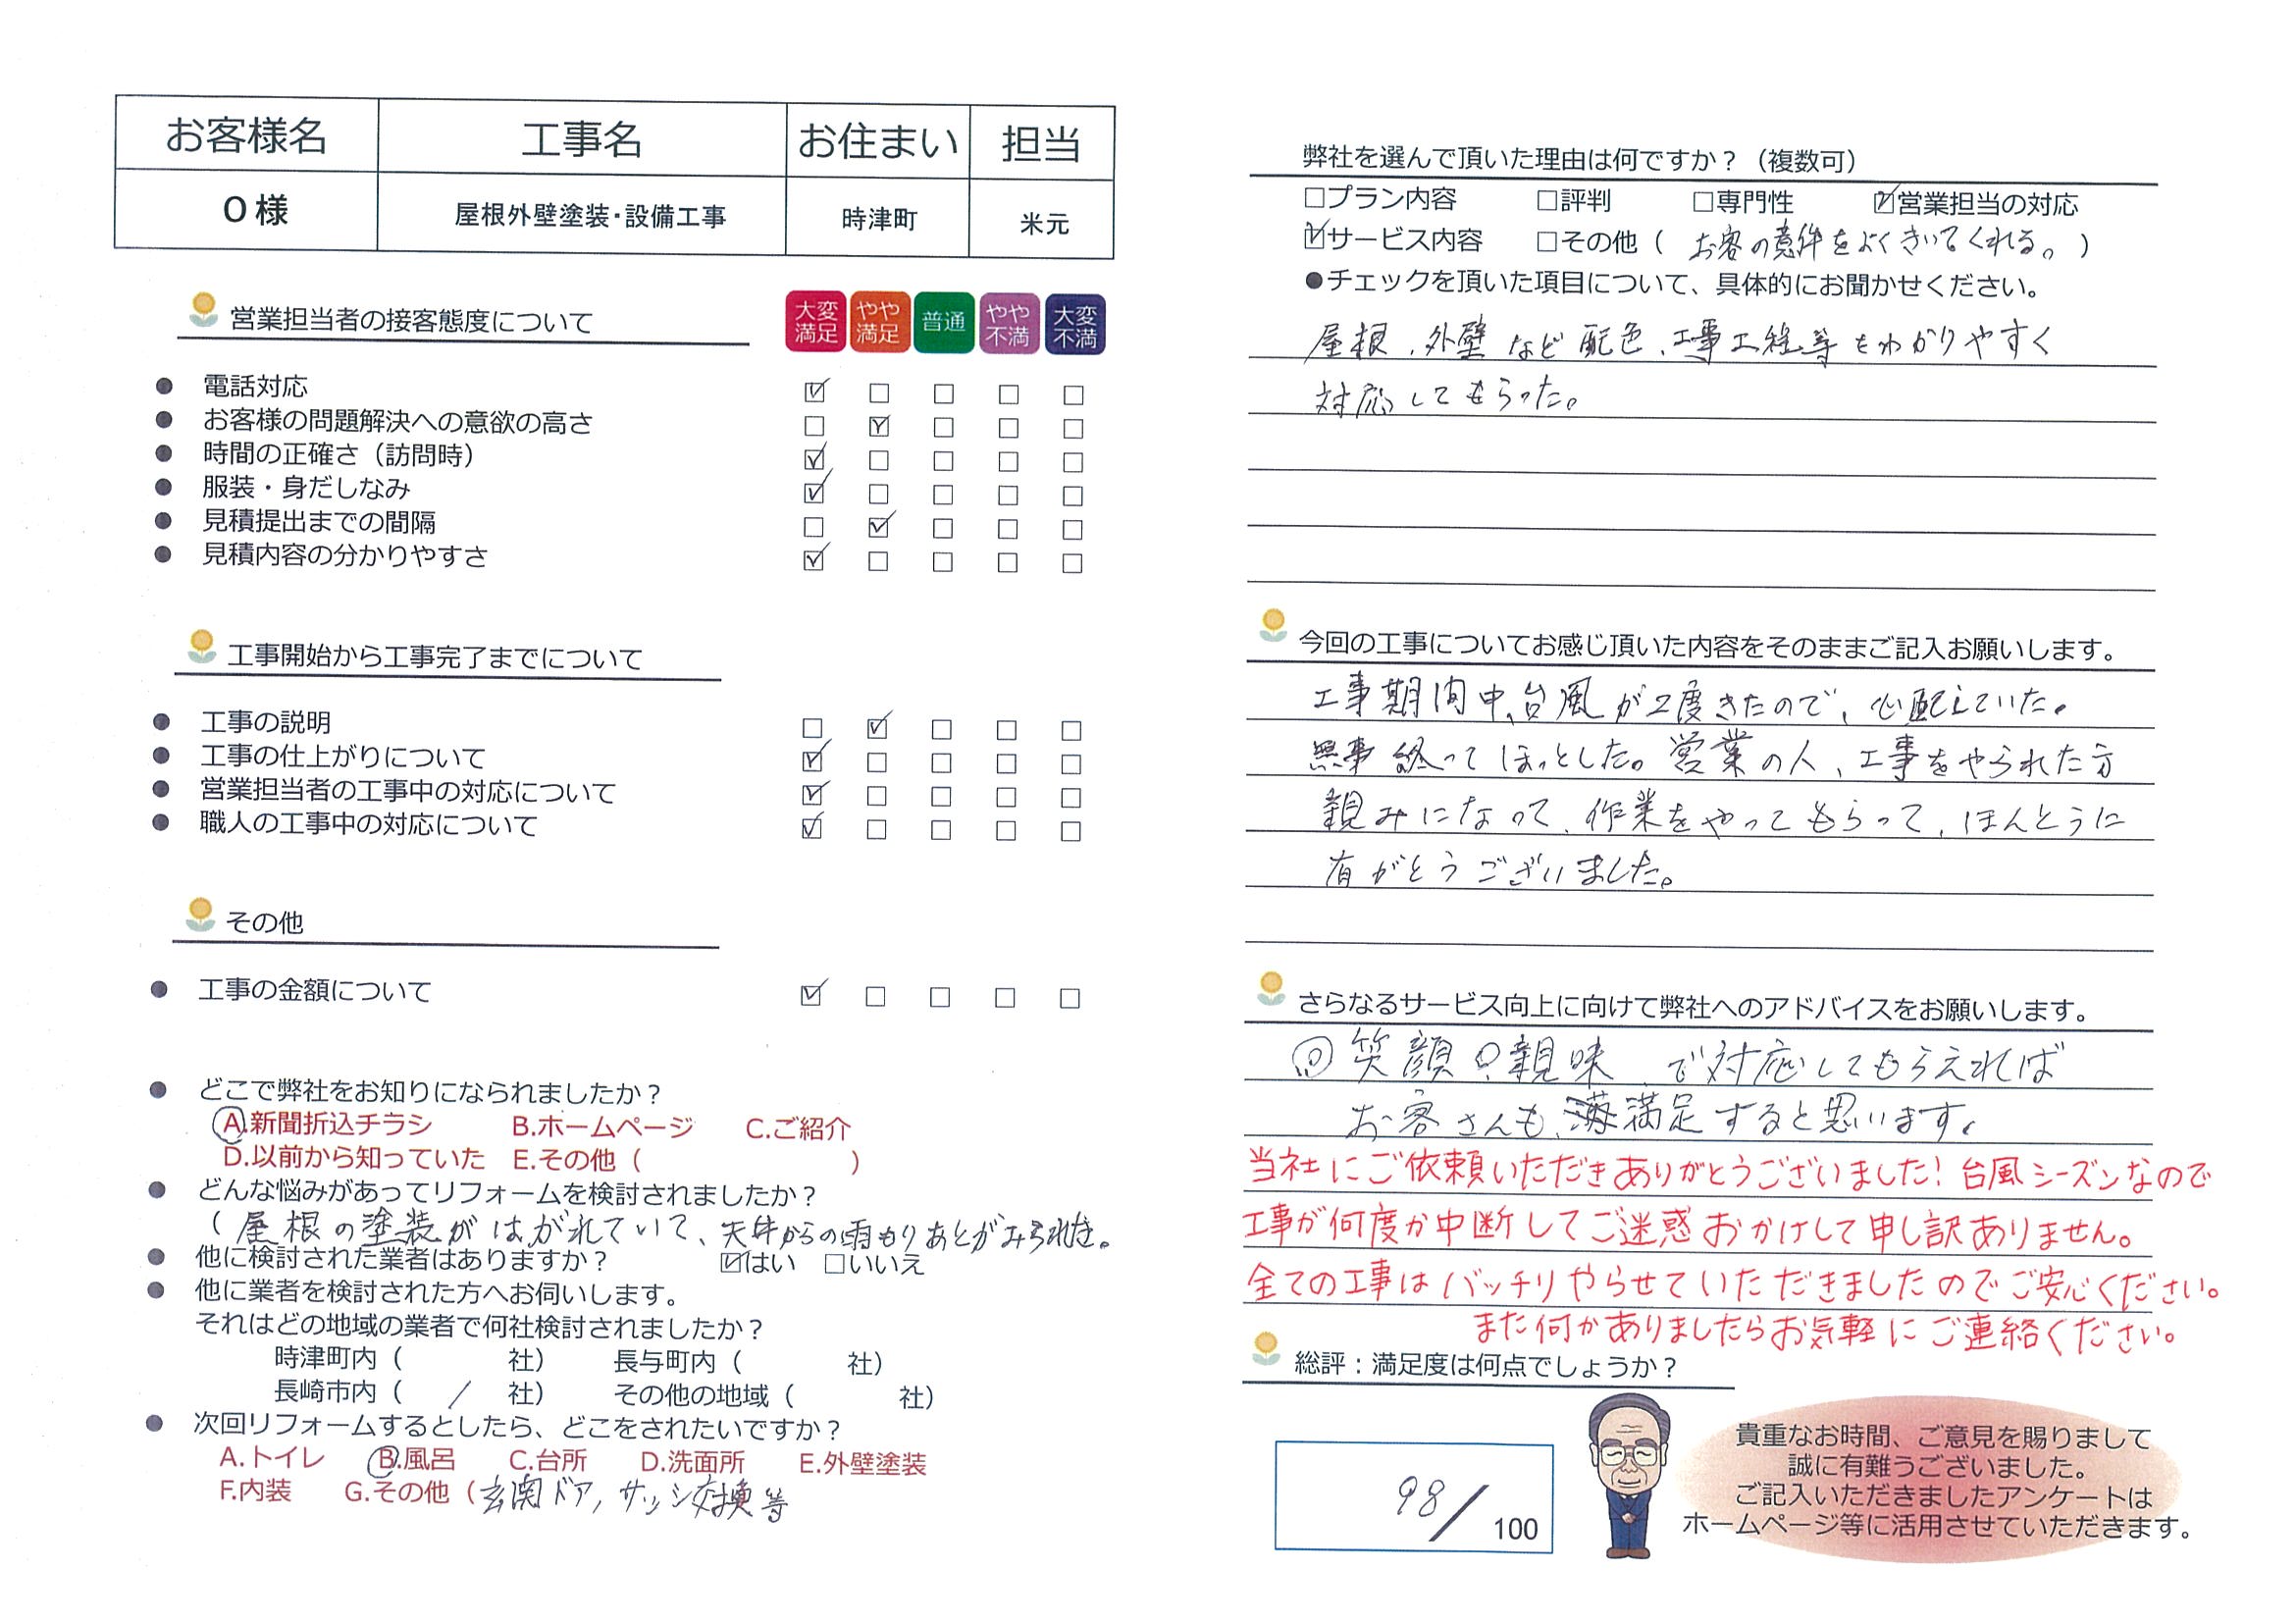 お客様名 工事名 お住まい 担当
O様 屋根外壁塗装・設備工事 時津町 米元
営業担当者の接客態度について
大変満足 やや満足 普通 やや不満 大変不満
● 電話対応 ☑ □ □ □ □
● お客様の問題解決への意欲の高さ □ ☑ □ □ □
● 時間の正確さ（訪問時） ☑ □ □ □ □
● 服装・身だしなみ ☑ □ □ □ □
● 見積提出までの間隔 □ ☑ □ □ □
● 見積内容の分かりやすさ ☑ □ □ □ □
工事開始から工事完了までについて
● 工事の説明 □ ☑ □ □ □
● 工事の仕上がりについて ☑ □ □ □ □
● 営業担当者の工事中の対応について ☑ □ □ □ □
● 職人の工事中の対応について ☑ □ □ □ □
その他
● 工事の金額について ☑ □ □ □ □
● どこで弊社をお知りになられましたか？
A.新聞折込チラシ B.ホームページ C.ご紹介
D.以前から知っていた E.その他（ ）
● どんな悩みがあってリフォームを検討されましたか？
（屋根の塗装がはがれていて、天井からの雨もりあとがみられた。
● 他に検討された業者はありますか？ ☑はい □いいえ
● 他に業者を検討された方へお伺いします。
それはどの地域の業者で何社検討されましたか？
時津町内（ 社） 長与町内（ 社）
長崎市内（ / 社） その他の地域（ 社）
● 次回リフォームするとしたら、どこをされたいですか？
A.トイレ B.風呂 C.台所 D.洗面所 E.外壁塗装
F.内装 G.その他（玄関ドア，サッシ交換等
弊社を選んで頂いた理由は何ですか？（複数可）
□プラン内容 □評判 □専門性 ☑営業担当の対応
☑サービス内容 □その他（ お客の意件をよくきいてくれる。）
●チェックを頂いた項目について、具体的にお聞かせください。
屋根、外壁など配色、工事工程等をわかりやすく
対応してもらった。
今回の工事についてお感じ頂いた内容をそのままご記入お願いします。
工事期間中、台風が2度きたので、心配していた。
無事終ってほっとした。営業の人、工事をやられた方
親みになって、作業をやってもらって、ほんとうに
有がとうございました。
さらなるサービス向上に向けて弊社へのアドバイスをお願いします。
笑顔 親味、で対応してもらえれば
お客さんも、満足すると思います。
当社にご依頼いただきありがとうございました！台風シーズンなので
工事が何度か中断してご迷惑おかけして申し訳ありません。
全ての工事はバッチリやらせていただきましたのでご安心ください。
また何かありましたらお気軽にご連絡ください。
総評：満足度は何点でしょうか？
98/100
貴重なお時間、ご意見を賜りまして
誠に有難うございました。
ご記入いただきましたアンケートは
ホームページ等に活用させていただきます。